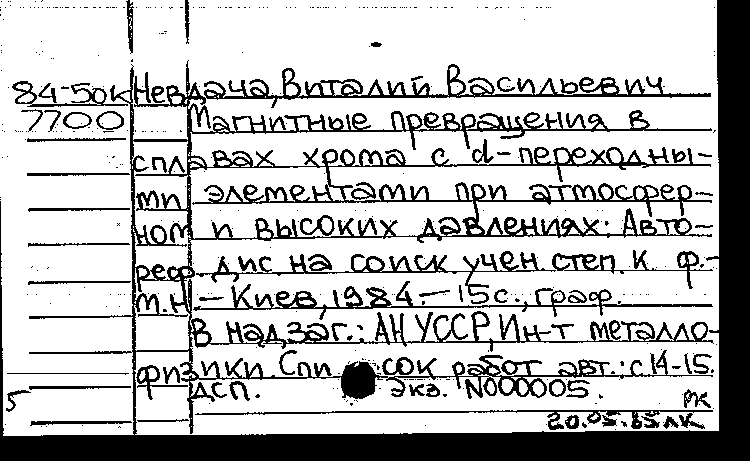 84-50к Невдача, Виталий Васильевич
7700 Магнитные превращения в
сплавах хрома с d-переходны-
ми элементами при атмосфер-
ном и высоких давлениях: Авто-
реф. дис. на соиск. учен. степ. к. ф.-
м.н. – Киев, 1984. – 15с., граф.
В надзаг.: АН УССР, Ин-т металло-
физики. Список работ авт.: с 14-15.
ДСП. Экз. N000005.
5 РК
20.05.85 ЛК